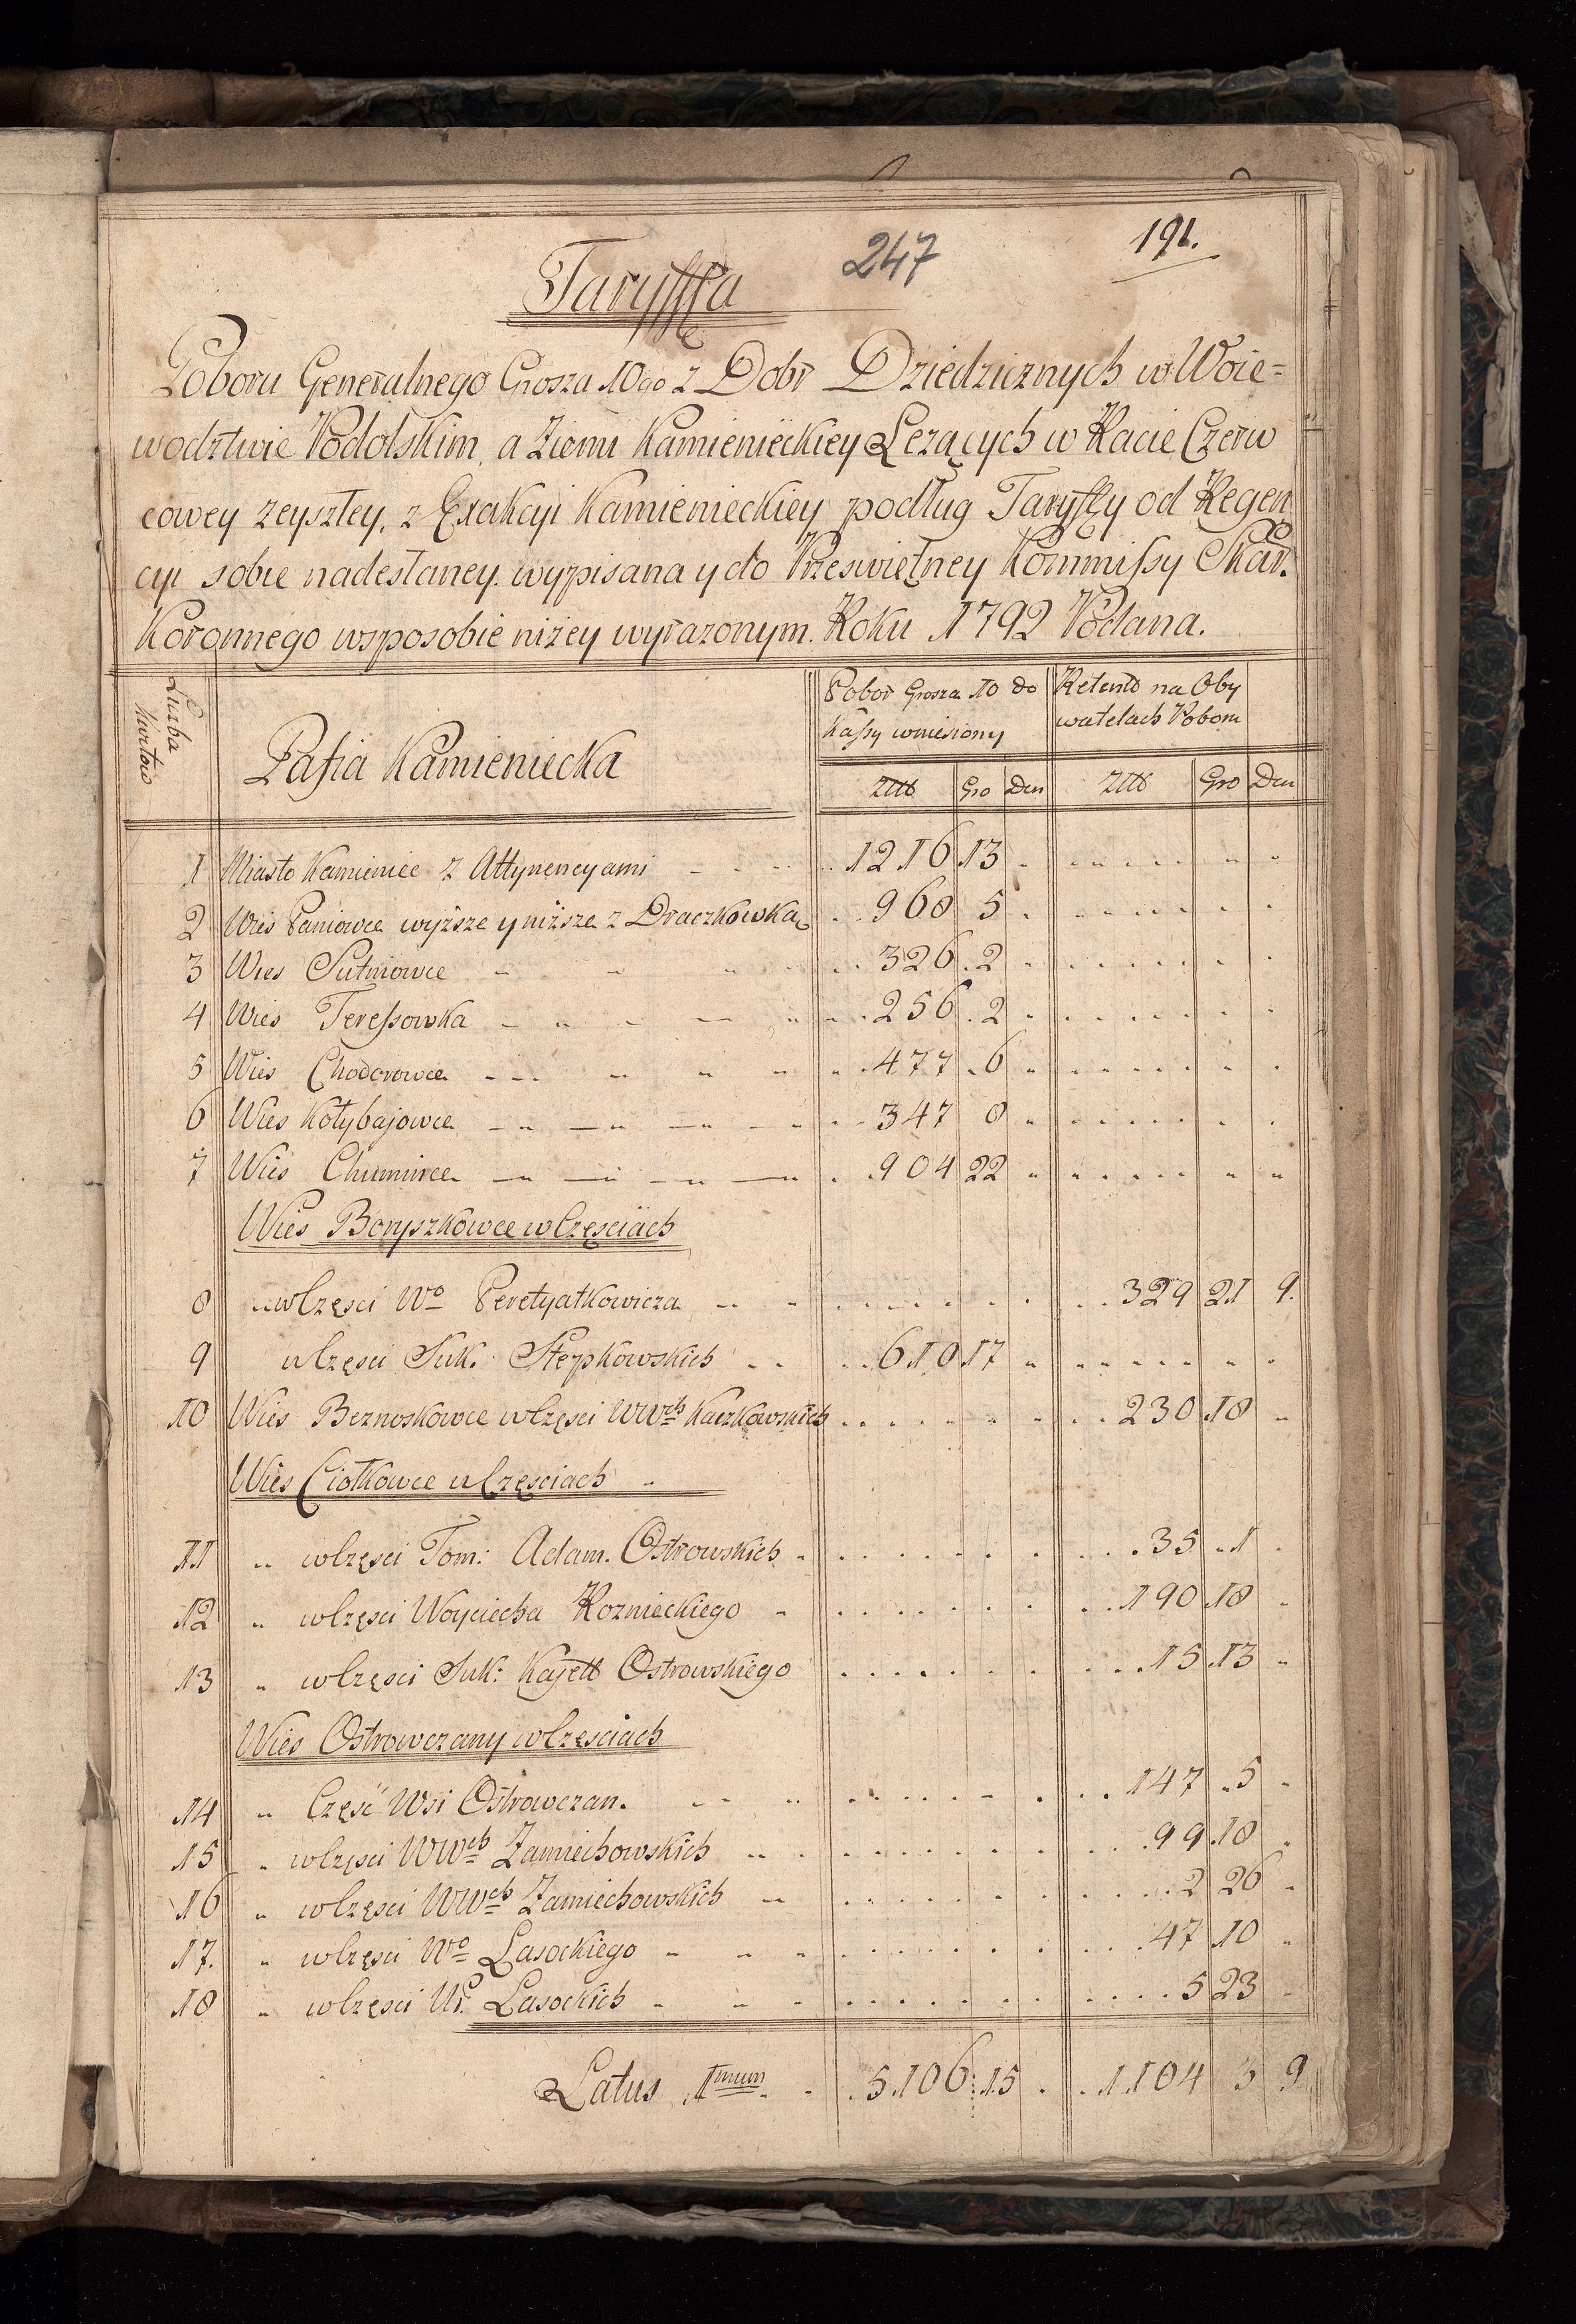 247
191.
Taryffa
Poboru Generalnego Grosza 10go z Dobr Dziedzicznych w Woie=
wodztwie Podolskim, a Ziemi Kamienieckiey Leżących w Racie Czerw
cowey zeyszłey, z Exakcyi Kamienieckiey podług Taryffy od Regen
cyi sobie nadesłaney wypisana y do Prześwietney Kommissy Skar.
Koronnego wsposobie niżey wyrażonym. Roku 1792 Podana.
Liczba Kwitow
Pafia Kamieniecka
Pobor Grosza 10 do Kassy wniesiony
Retenta na Oby watelach Poboru
Złł Gro Den Złł Gro Den
1 Miasto Kamieniec z Attynencyami 1216 13
2 Wieś Paniowce wyższe y niższe z Draczkowką 968 5
3 Wieś Putniowce 326 2
4 Wieś Teressowka 256 2
5 Wieś Chodorowce 477 6
6 Wieś Kołybajowce 347 8
7 Wieś Chumińce 904 22
Wieś Boryszkowce w Częsciach
8 w Częsci Wo Peretyatkowicza 329 21 9.
9 w Częsci Suk: Stępkowskich 610 17
10 Wieś Beznoskowce w Częsci WWch Kaczkowskich 230 18
Wieś Ciołkowce w Częsciach
11 w Częsci Tom: Adam. Ostrowskich 35 1
12 w Częsci Woyciecha Roznieckiego 190 18
13 w Częsci Suk: Kajett Ostrowskiego 15 13
Wieś Ostrowczany w Częsciach
14 Część Wsi Ostrowczan. 147 5
15 w Częsci WWch Zamiechowskich 99 18
16 w Częsci WWch Zamiechowskich 2 26
17. w Częsci Wo Lasockiego 47 10
18 w Częsci Ur. Lasockich 5 23
Latus 1mum 5106 15 1104 3 9